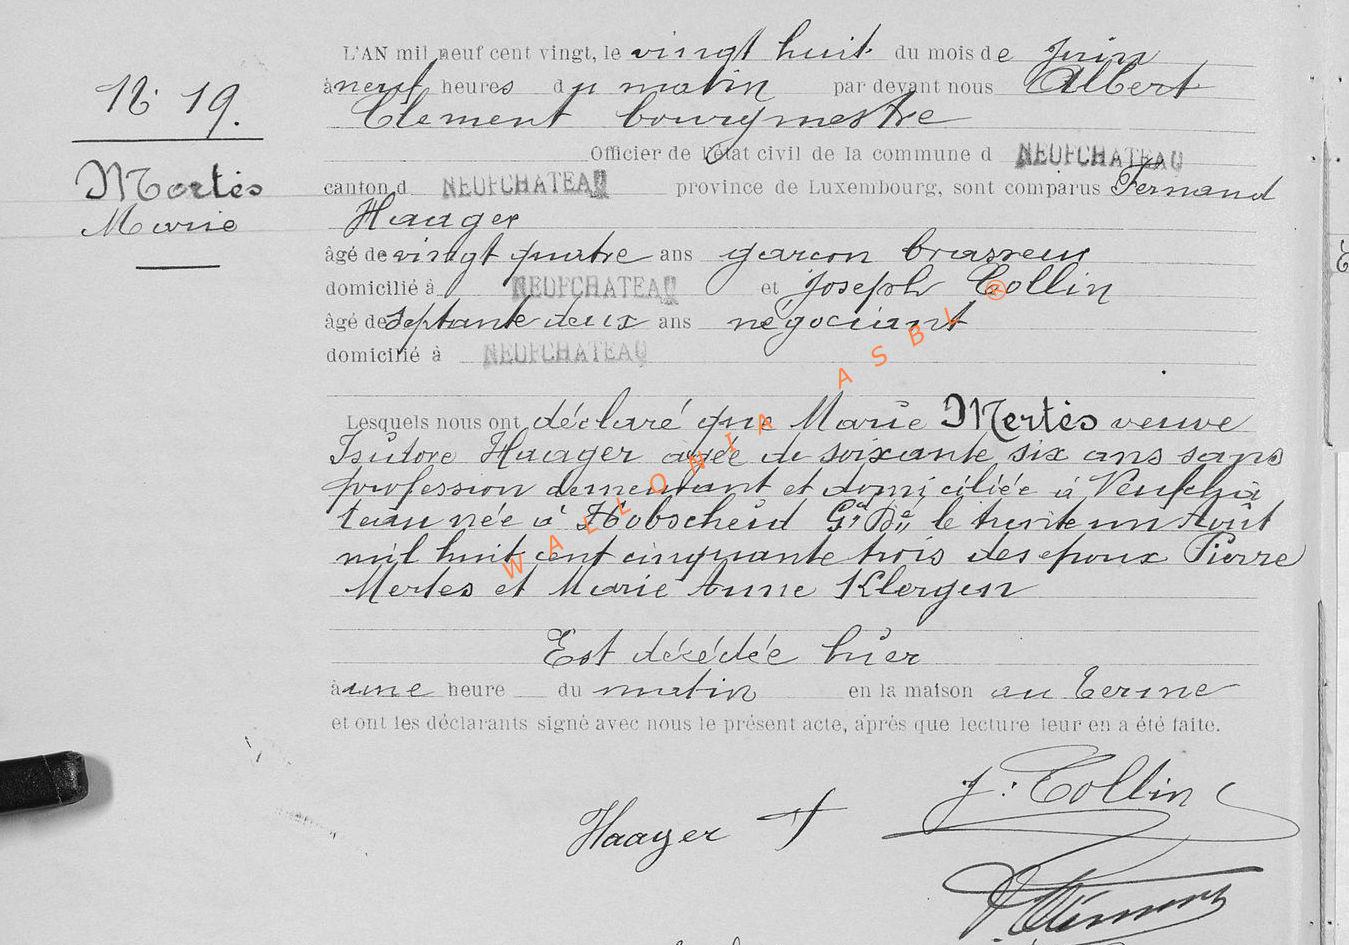 N° 19.
Mertès
Marie
L'AN mil neuf cent vingt, le vingt huit du mois de Juin
à neuf heures du matin par devant nous Albert
Clement bourgmestre
Officier de l'état civil de la commune d NEUFCHATEAU
canton d NEUFCHATEAU province de Luxembourg, sont comparus Fernand
Haager
âgé de vingt quatre ans garcon brasseur
domicilié à NEUFCHATEAU et Joseph Collin
âgé de septante deux ans négociant
domicilié à NEUFCHATEAU
Lesquels nous ont déclaré que Marie Mertès veuve
Isidore Haager agée de soixante six ans sans
profession demeurant et domiciliée à Neufchâ
teau née à Hobscheid Gd Dé le trente un Août
mil huit cent cinquante trois des epoux Pierre
Mertes et Marie Anne Klergen
Est décédée hier
à une heure du matin en la maison au Terme
et ont les déclarants signé avec nous le présent acte, après que lecture leur en a été faite.
J. Collin
Haager
Clément
WALLONIA ASBL ®